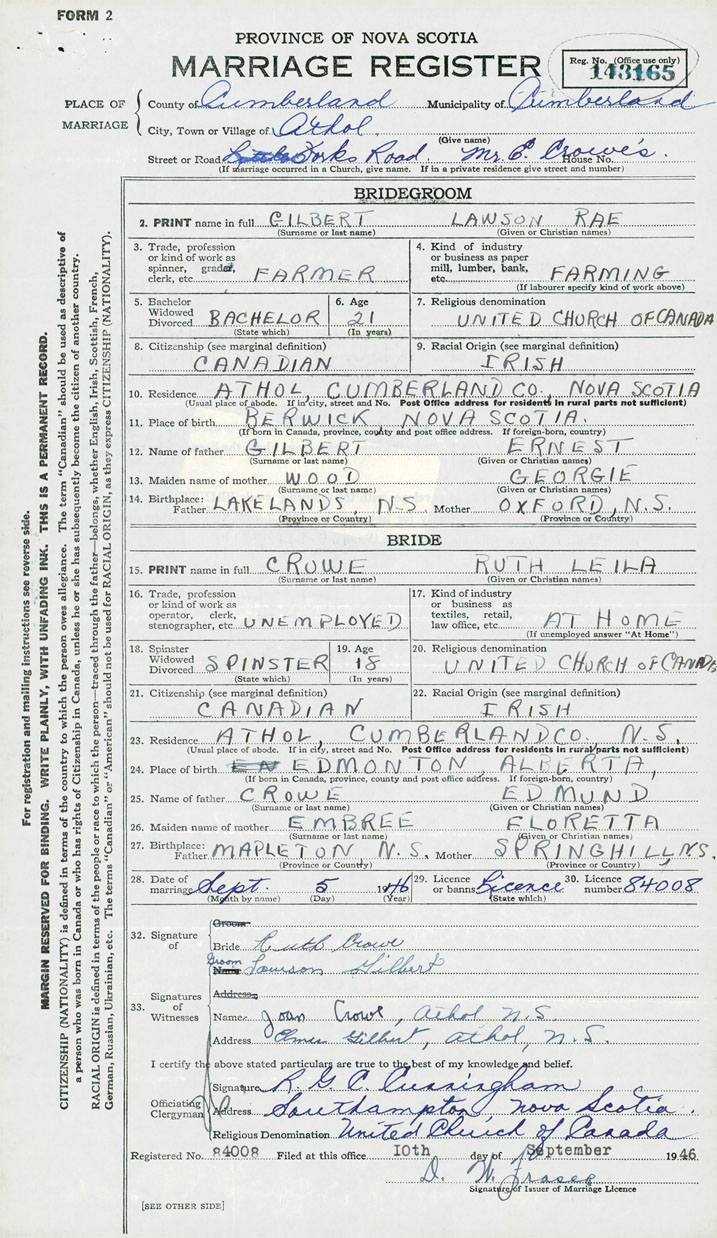 FORM 2
PROVINCE OF NOVA SCOTIA
MARRIAGE REGISTER
Reg. No. (Office use only)
143165
PLACE OF MARRIAGE
County of Cumberland Municipality of Cumberland
City, Town or Village of Athol.
(Give name)
Street or Road Forks Road. Mr. E. Crowe's. House No.
(If marriage occurred in a Church, give name. If in a private residence give street and number)
BRIDEGROOM
2. PRINT name in full GILBERT LAWSON RAE
(Surname or last name) (Given or Christian names)
3. Trade, profession or kind of work as spinner, grader, clerk, etc. FARMER
4. Kind of industry or business as paper mill, lumber, bank, etc. FARMING
(If labourer specify kind of work above)
5. Bachelor Widowed Divorced BACHELOR
(State which)
6. Age 21
(In years)
7. Religious denomination
UNITED CHURCH OF CANADA
8. Citizenship (see marginal definition)
CANADIAN
9. Racial Origin (see marginal definition)
IRISH
10. Residence ATHOL, CUMBERLAND CO., NOVA SCOTIA
(Usual place of abode. If in city, street and No. Post Office address for residents in rural parts not sufficient)
11. Place of birth BERWICK NOVA SCOTIA.
(If born in Canada, province, county and post office address. If foreign-born, country)
12. Name of father GILBERT ERNEST
(Surname or last name) (Given or Christian names)
13. Maiden name of mother WOOD GEORGIE
(Surname or last name) (Given or Christian names)
14. Birthplace: Father LAKELANDS, N.S. Mother OXFORD, N.S.
(Province or Country) (Province or Country)
BRIDE
15. PRINT name in full CROWE RUTH LEILA
(Surname or last name) (Given or Christian names)
16. Trade, profession or kind of work as operator, clerk, stenographer, etc. UNEMPLOYED
17. Kind of industry or business as textiles, retail, law office, etc. AT HOME
(If unemployed answer "At Home")
18. Spinster Widowed Divorced SPINSTER
(State which)
19. Age 18
(In years)
20. Religious denomination
UNITED CHURCH OF CANADA
21. Citizenship (see marginal definition)
CANADIAN
22. Racial Origin (see marginal definition)
IRISH
23. Residence ATHOL, CUMBERLAND CO., N.S.
(Usual place of abode. If in city, street and No. Post Office address for residents in rural parts not sufficient)
24. Place of birth EDMONTON, ALBERTA,
(If born in Canada, province, county and post office address. If foreign-born, country)
25. Name of father CROWE EDMUND
(Surname or last name) (Given or Christian names)
26. Maiden name of mother EMBREE FLORETTA
(Surname or last name) (Given or Christian names)
27. Birthplace: Father MAPLETON N.S. Mother SPRINGHILL, N.S.
(Province or Country) (Province or Country)
28. Date of marriage Sept. 5 1946
(Month by name) (Day) (Year)
29. Licence or banns Licence
(State which)
30. Licence number 84008
32. Signature of
Groom
Bride Ruth Crowe
Groom Name Lawson Gilbert
Address
33. Signatures of Witnesses
Name Joan Crowe, Athol N.S.
Address Elmer Gilbert, Athol, N.S.
I certify the above stated particulars are true to the best of my knowledge and belief.
Officiating Clergyman
Signature R. G. C. Cunningham
Address Southampton, Nova Scotia.
Religious Denomination United Church of Canada
Registered No. 84008 Filed at this office 10th day of September 1946
D. W. Fraser
Signature of Issuer of Marriage Licence
[SEE OTHER SIDE]
For registration and mailing instructions see reverse side.
MARGIN RESERVED FOR BINDING. WRITE PLAINLY, WITH UNFADING INK. THIS IS A PERMANENT RECORD.
CITIZENSHIP (NATIONALITY) is defined in terms of the country to which the person owes allegiance. The term "Canadian" should be used as descriptive of
a person who was born in Canada or who has rights of Citizenship in Canada, unless he or she has subsequently become the citizen of another country.
RACIAL ORIGIN is defined in terms of the people or race to which the person—traced through the father—belongs, whether English, Irish, Scottish, French,
German, Russian, Ukrainian, etc. The terms "Canadian" or "American" should not be used for RACIAL ORIGIN, as they express CITIZENSHIP (NATIONALITY).